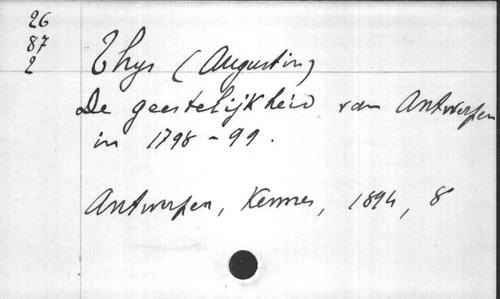 26
87
2
Thys (Augustin)
De geestelijkheid van Antwerpen
in 1798-99.
Antwerpen, Kennes, 1894, 8